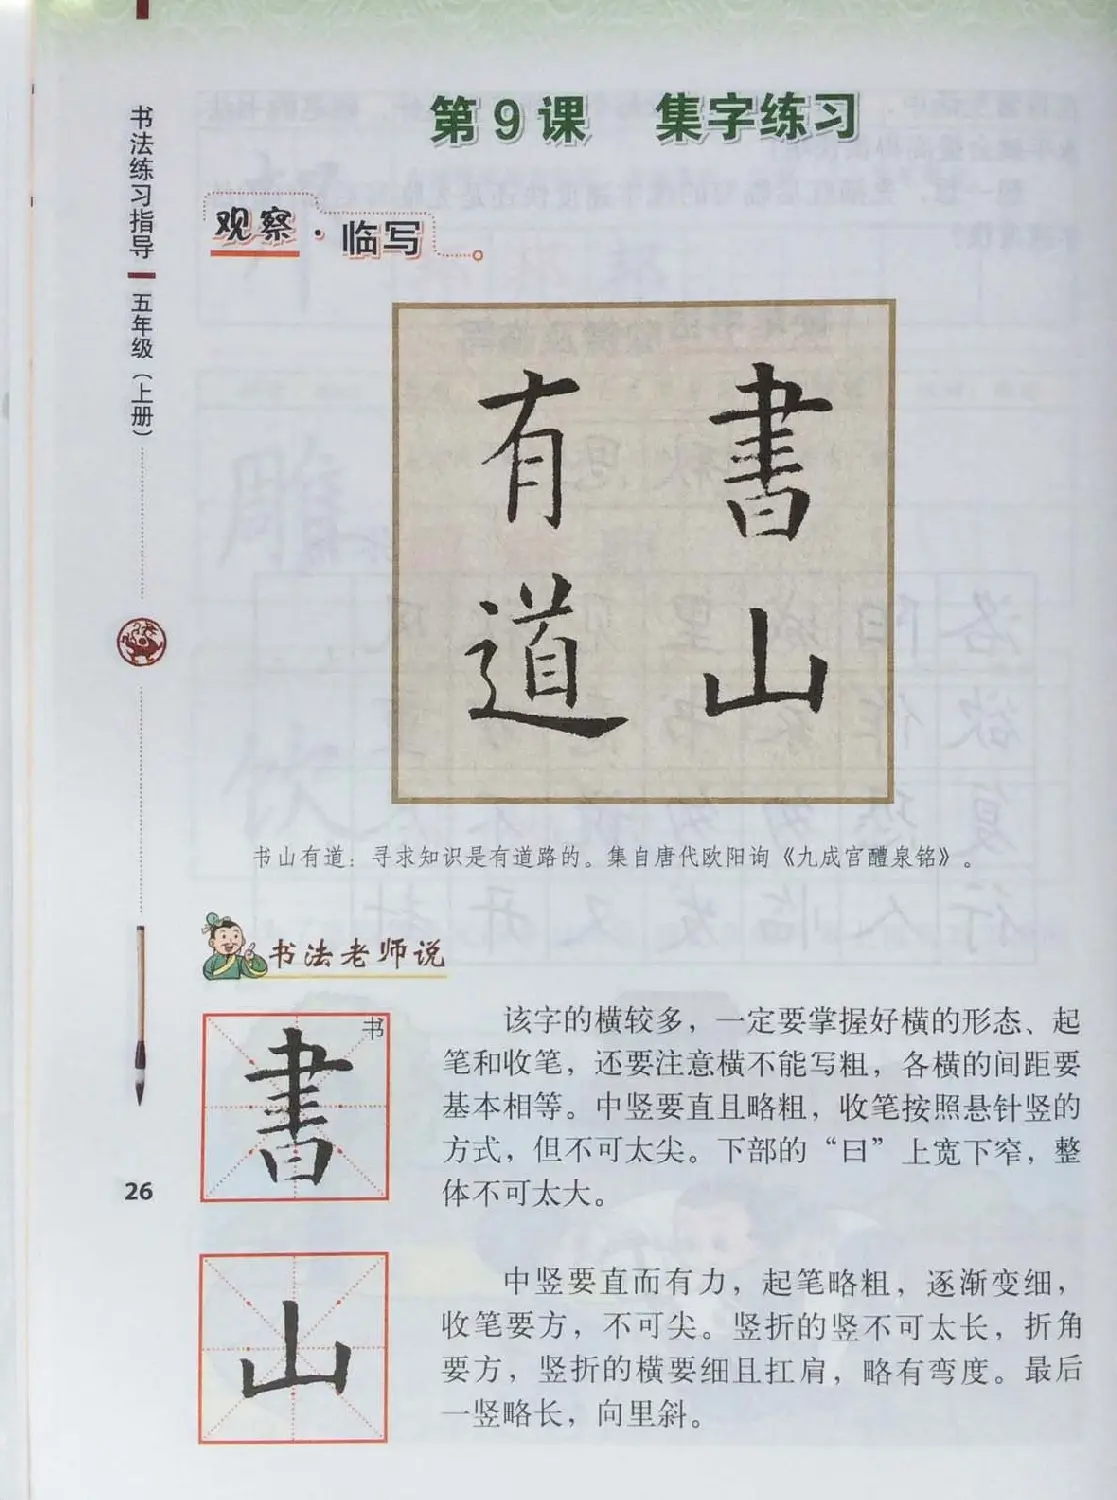 书法练习指导
五年级(上册)
第9课 集字练习
观察·临写
書山
有道
书山有道：寻求知识是有道路的。集自唐代欧阳询《九成宫醴泉铭》。
书法老师说
書
书
该字的横较多，一定要掌握好横的形态、起
笔和收笔，还要注意横不能写粗，各横的间距要
基本相等。中竖要直且略粗，收笔按照悬针竖的
方式，但不可太尖。下部的“曰”上宽下窄，整
体不可太大。
26
山
中竖要直而有力，起笔略粗，逐渐变细，
收笔要方，不可尖。竖折的竖不可太长，折角
要方，竖折的横要细且扛肩，略有弯度。最后
一竖略长，向里斜。